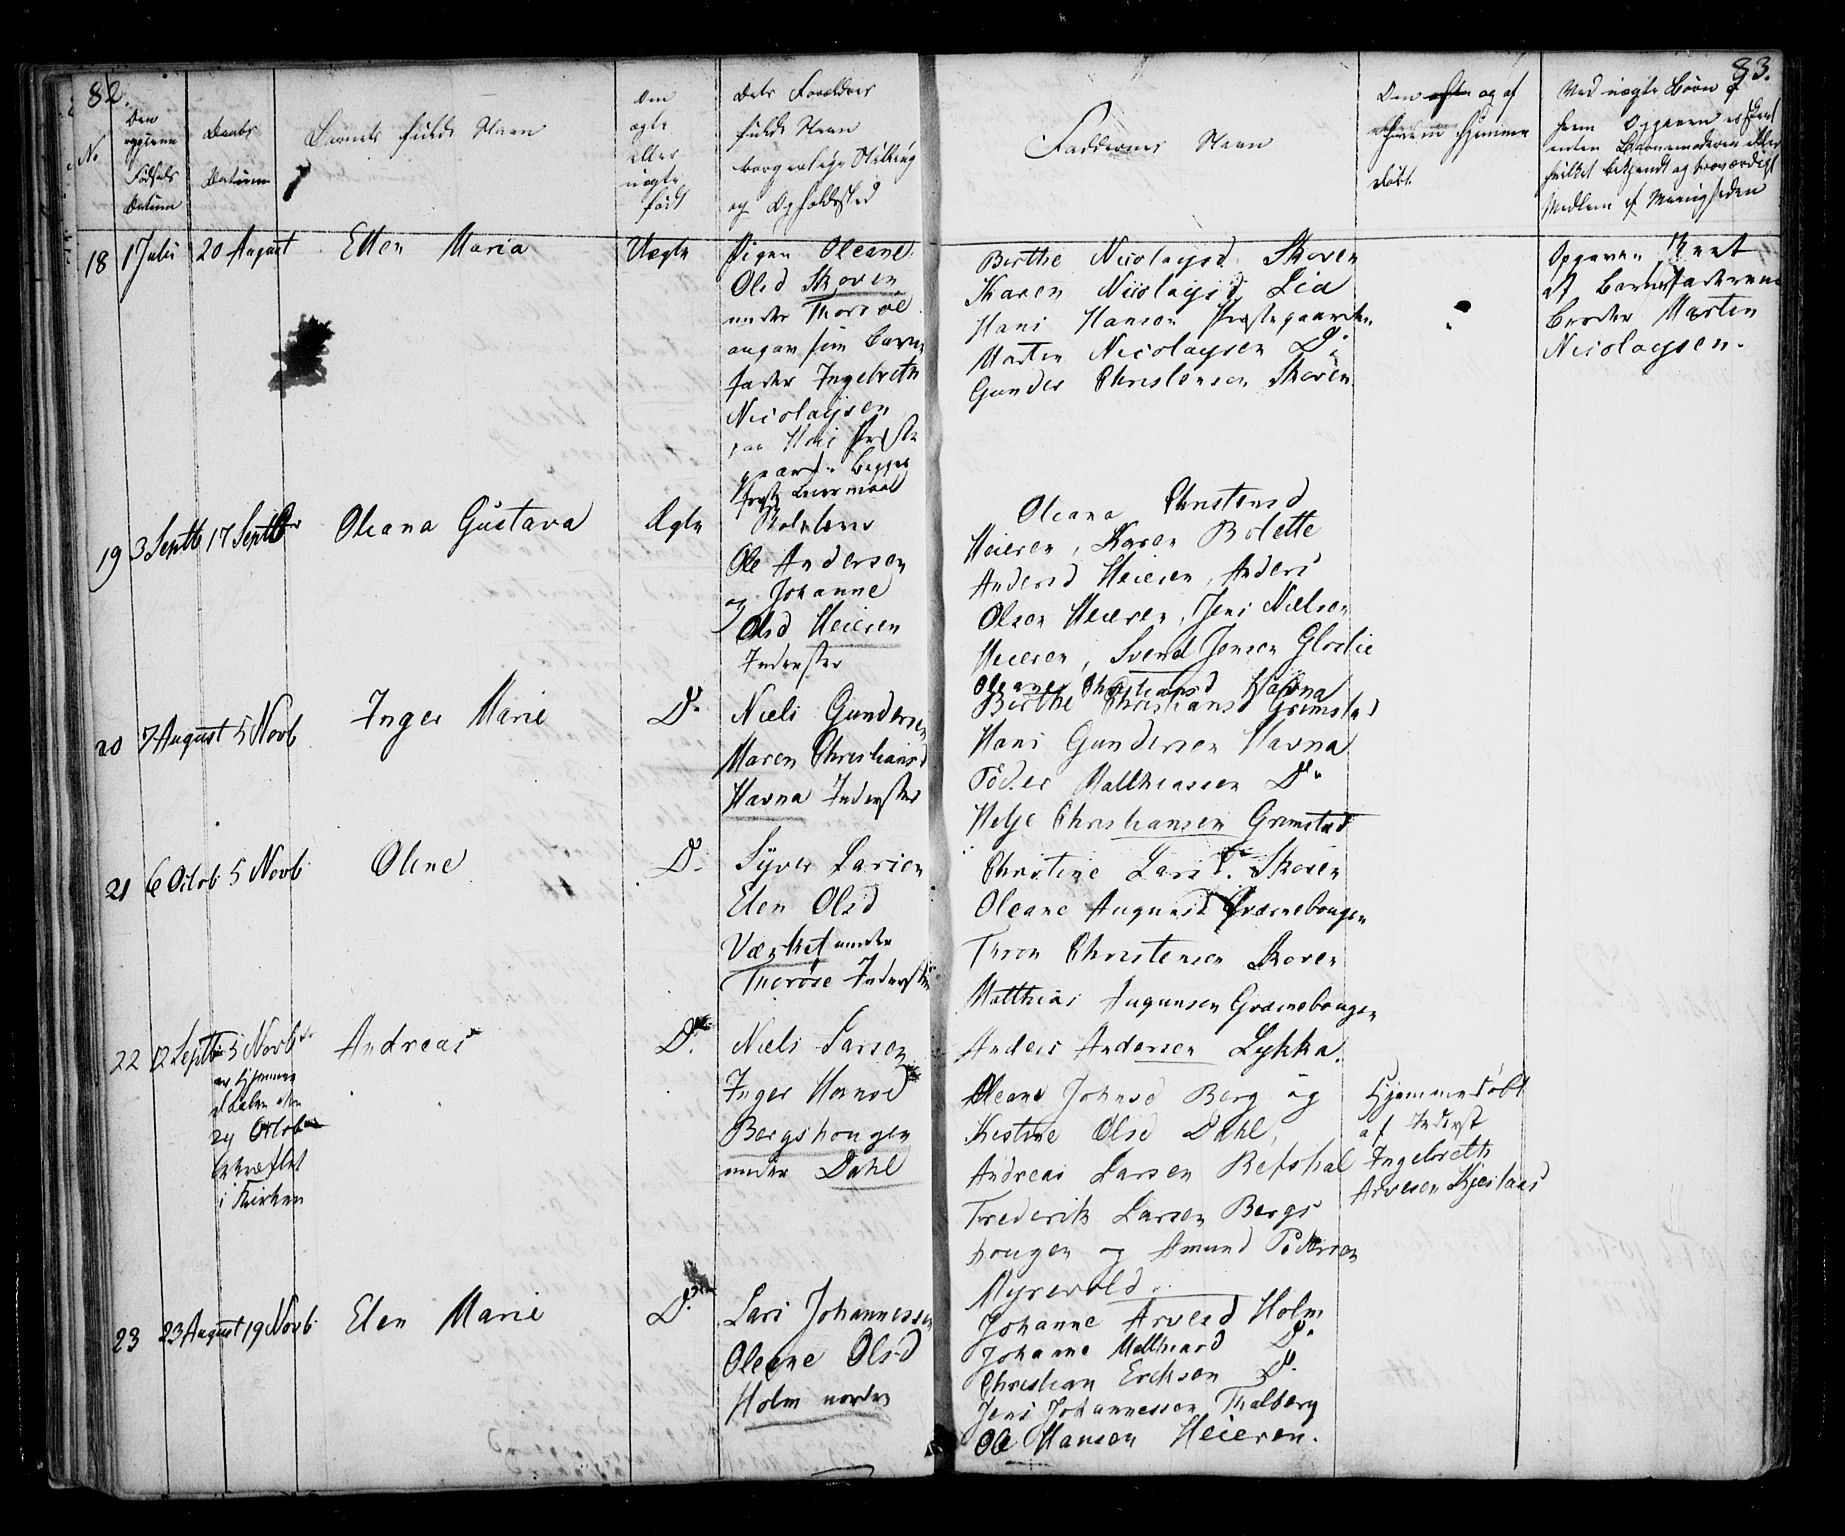 82.
83.
No
Den opgivne Fødsels Datum
Daabs Datum
Barnets fulde Navn
Om ægte eller uægte født
Dets Forældres fulde Navn borgerlige Stilling og Opholdssted
Faddernes Navn
Om og af hvem hjemme døbt
Ved uægte Børn af hvem Opgaven er skeet enten Barnemoderen eller hvilket bekjendt og troværdigt Medlem af Menigheden
18 1 Juli 20 August Ellen Maria Uægte
Pigen Oleane
Olsd Skoven
under Thorsøe
angav som Barne
fader Ingebreth
Nicolaysen
paa Præste
gaard Begges
første Leiermaal
Berthe Nicolaysd. Skoven
Karen Nicolaysd Lia
Hans Hansen Præstegaarden
Morten Nicolaysen Do
Gunder Christensen Skoven
Opgaven skeet
af Barnefaderens
Broder Morten
Nicolaysen.
19 3 Septb 17 Septbr Oleana Gustava Ægte
Ole Andersen
og Johanne
Olsd Heieren
Inderster
Oleana Christensd
Heieren, Karen Bolette
Andersd Heieren, Anders
Olsen Heieren, Jens Nielsen
Heieren, Svend Jensen Glostie
20 7 August 5 Novb Inger Marie Do
Niels Gundersen
Maren Christiansd
Havna Inderster
Oleane Christiansd Havna
Berthe Christiansd Grimstad
Hans Gundersen Havna
Peder Matthiassen Do
Helje Christiansen Grimstad
21 6 Octob 5 Novb. Olene Do.
Syver Larsen
Elen Olsd
Værket under
Thorøse Inderster
Christine Larsd. Skoven
Oleane Augunsd Grasnehougen
Thron Christensen Skoven
Matthias Augunsen Grasnehougen
22 12 Septb 5 Novb Andreas Do.
er hjemme
døben den
24 Octob
bekræftet
i Kirken
Niels Larsen
Inger Hansd
Bergshougen
under Dahl
Anders Andersen Lykka.
Oleane Johnsd Berg og
Kistine Olsd Dahl,
Andreas Larsen Refshal
Frederik Larsen Bergs
hougen og Amund Pedersen
Myrevold.
Hjemmedøbt
af Inderst
Ingebreth
Arvesen Kjeslaas
23 23 August 19 Novb. Elen Marie Do.
Lars Johannessen
Oleane Olsd
Holm nordre
Johanne Arvesd Holm
Johanne Matthiasd Do.
Christian Ericksen Do.
Jens Johannessen Thalberg
Ole Hansen Heieren.